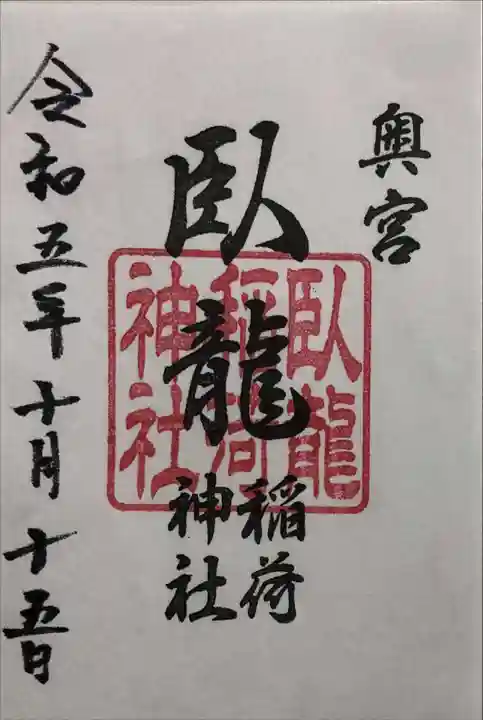 奥宮
臥龍
稲荷
神社
臥龍
稲荷
神社
令和五年十月十五日